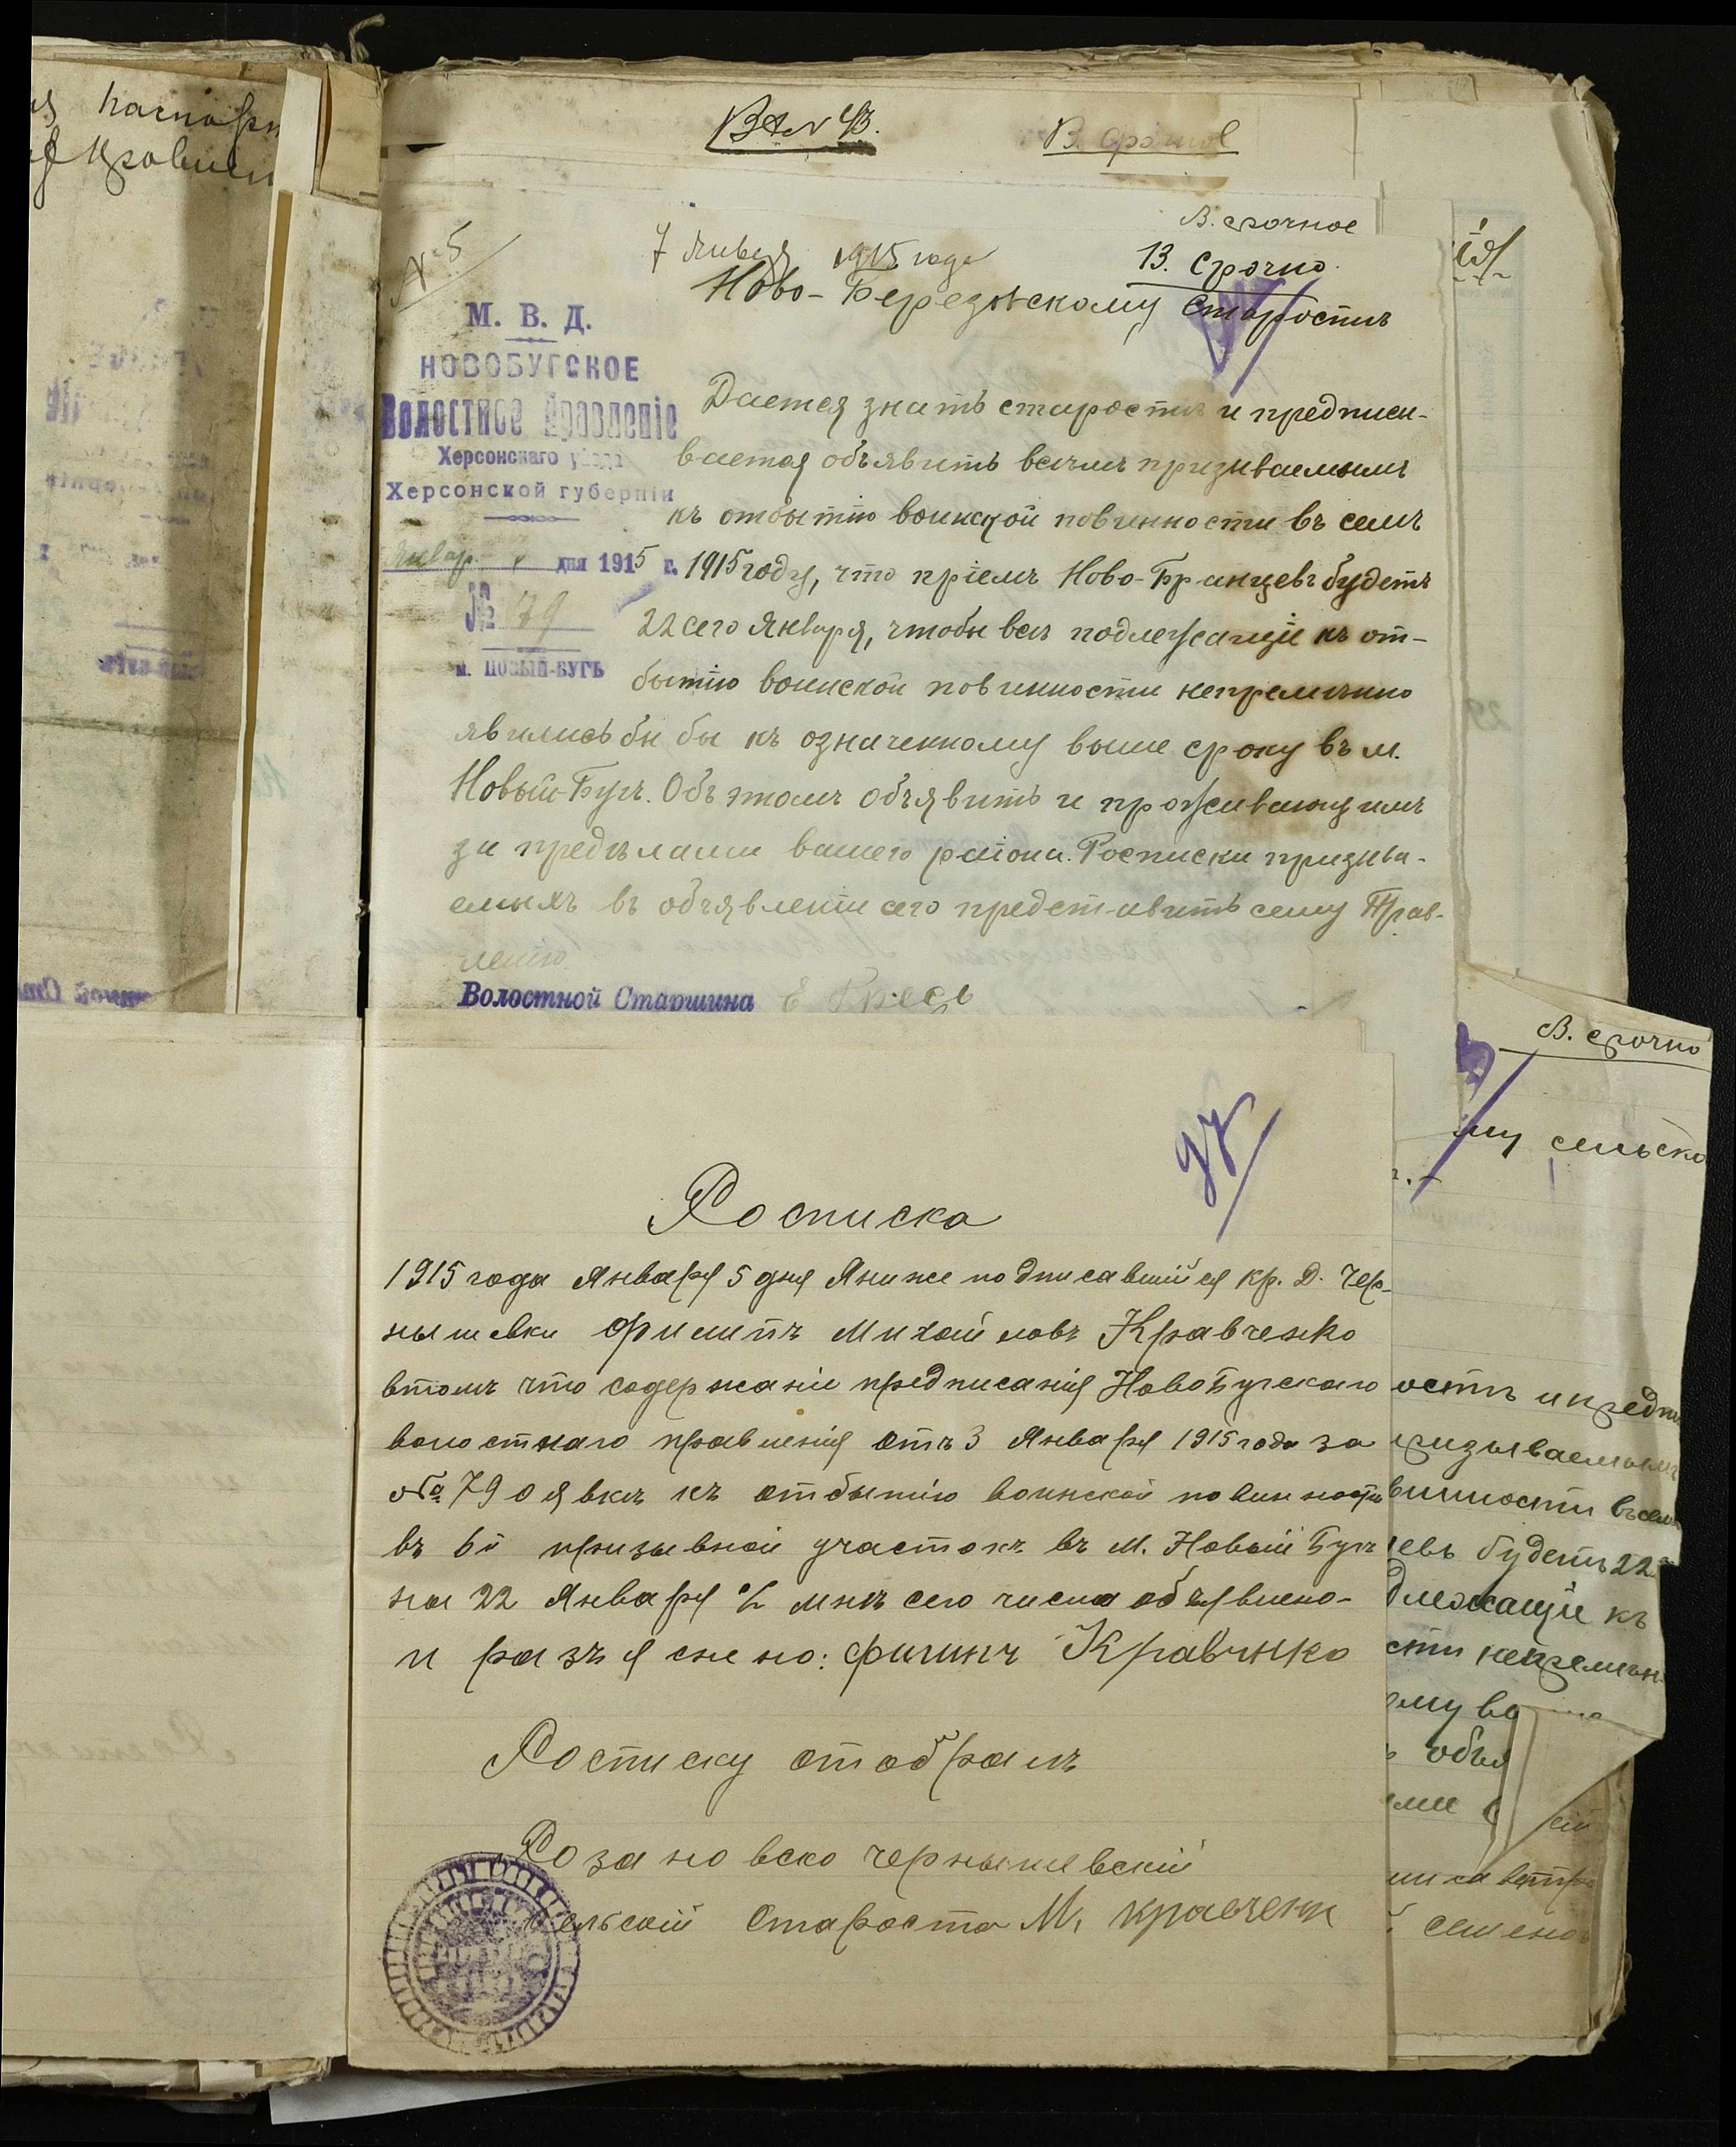 паспорт
В. срочное
№ 5
7 января 1915 года
В. Срочно.
Ново-Березовскому Старостѣ
М. В. Д.
НОВОБУГСКОЕ
Волостное Правленіе
Херсонскаго уѣзда
Херсонской губерніи
Январ дня 1915 г.
№ 79
м. НОВЫЙ-БУГЪ
Дается знать старостѣ и предписы-
вается объявить всѣмъ призываемымъ
къ отбытію воинской повинности въ семъ
1915 году, что пріемъ Ново-Бранцевъ будетъ
22 сего Января, чтобы всѣ подлежащіе къ от-
бытію воинской повинности непремѣнно
явились бы бы къ означенному выше сроку въ м.
Новый-Бугъ. Объ этомъ объявить и проживающимъ
за предѣлами вашего района. Росписки призыва-
емыхъ въ объявленіи сего представить сему Прав-
ленію
Волостной Старшина
97
Росписка
1915 года Января 5 дня Я ниже подписавшійся кр. Д. Чер-
нышевки Филипъ Михайловъ Кравченко
втомъ что содержаніе предписанія НовоБугскаго
волостнаго правленія отъ 3 Января 1915 года за
№ 79 о явкѣ къ отбытію воинской повинности
въ 6й призывной участокъ въ м. Новый Бугъ
на 22 Января с/г мнѣ сего числа объявлено-
и разъяснено: Филипъ Кравченко
Росписку отобралъ
Розановско чернышевскій
Сельскій Староста М. Кравченк
В. срочно
му сельско
остѣ и предпи
ризываемымъ
винности въ семъ
цевъ будетъ 22
длежащіе къ
сти непремѣн
ому вы
объя
ми